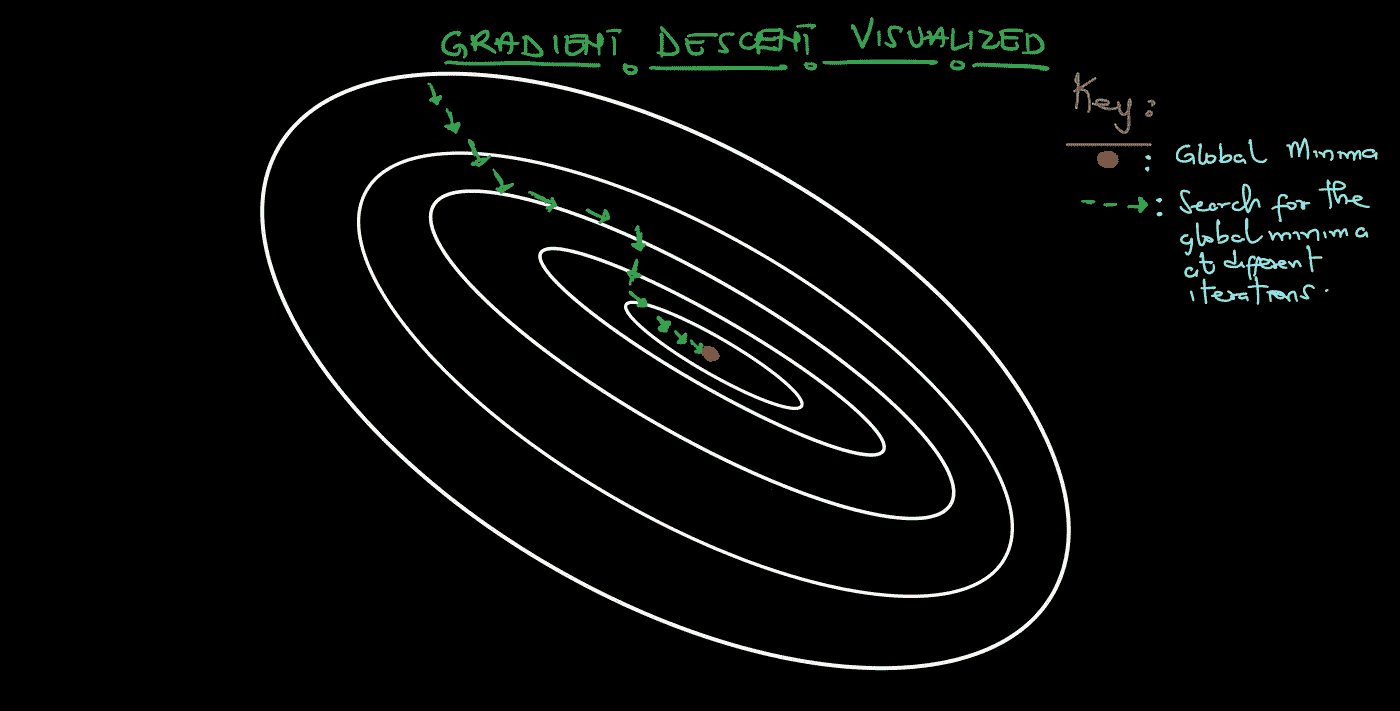 GRADIENT DESCENT VISUALIZED
Key:
: Global Minima
: Search for the
global minima
at different
iterations.